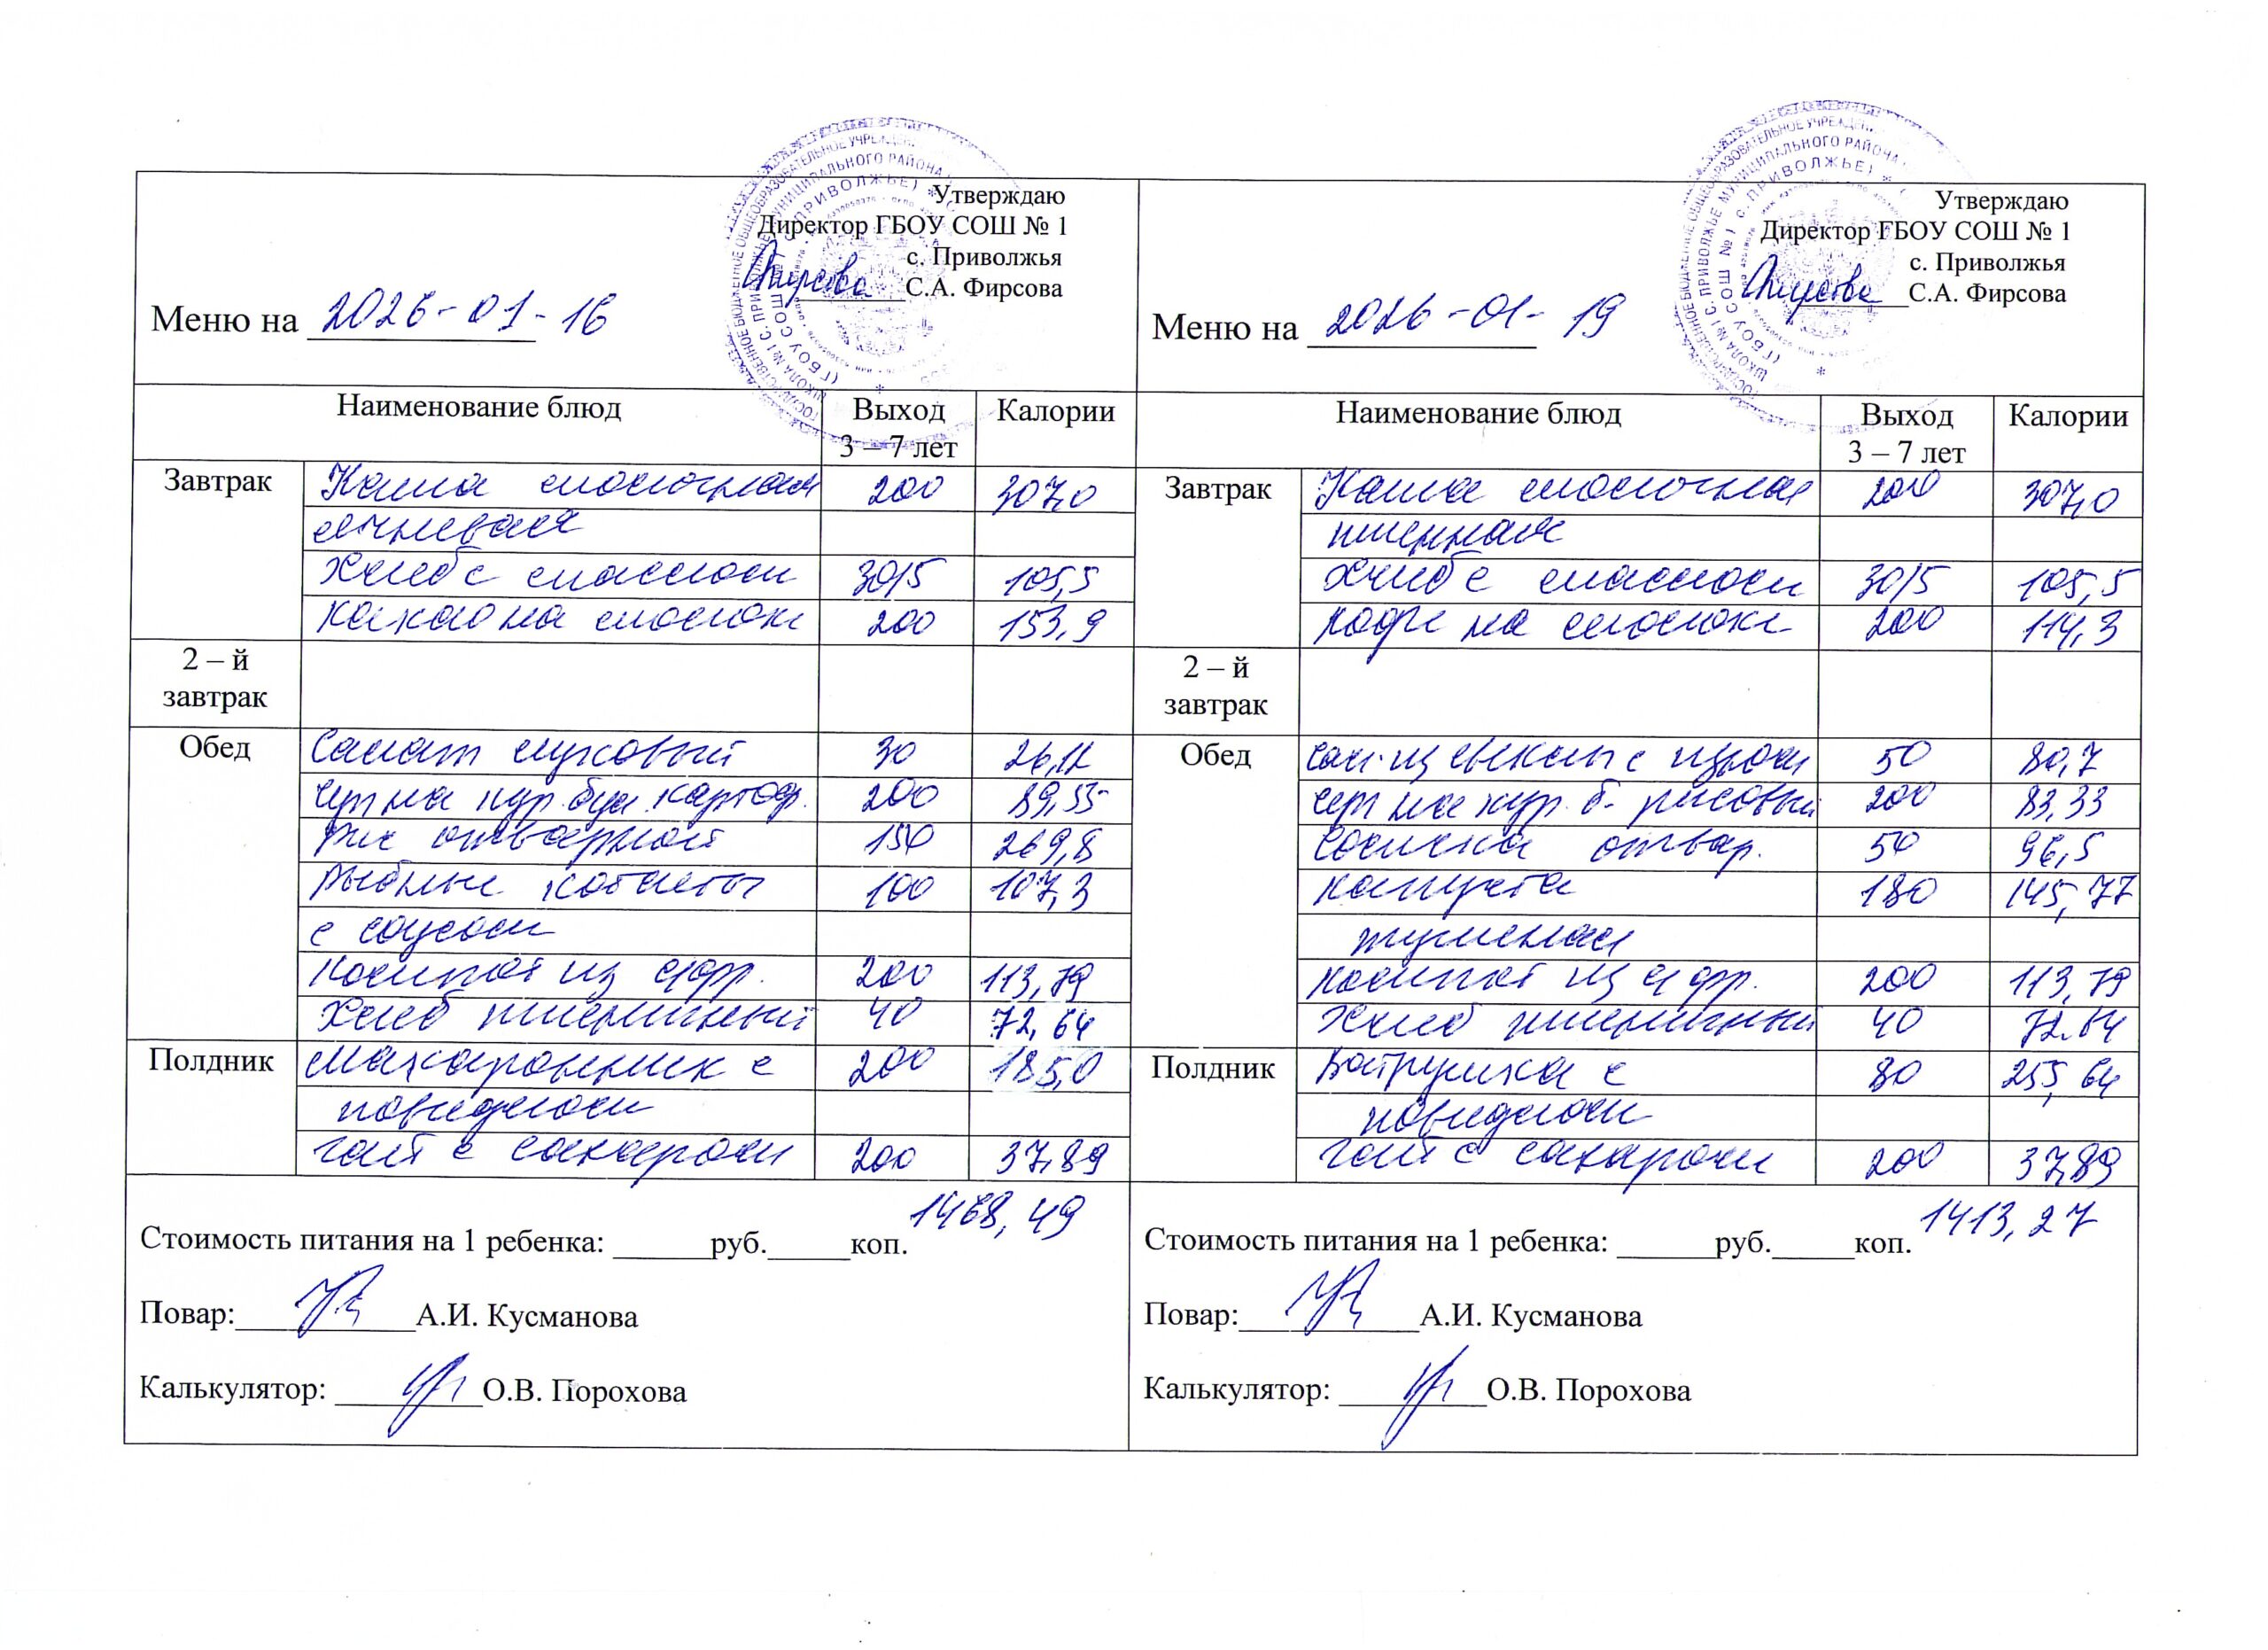 Утверждаю
Директор ГБОУ СОШ № 1
с. Приволжья
С.А. Фирсова
Меню на 2026-01-16
Наименование блюд Выход 3 – 7 лет Калории
Завтрак Каша молочная 200 307,0
ячневая
Хлеб с маслом 30/5 105,5
Какао на молоке 200 153,9
2 – й завтрак
Обед Салат луковый 30 26,12
Суп на кур. бул. картоф. 200 89,55
Рис отварной 150 269,8
Рыбные котлеты 100 107,3
с соусом
Компот из с/фр. 200 113,79
Хлеб пшеничный 40 72,64
Полдник Макаронник с 200 185,0
повидлом
Чай с сахаром 200 37,89
1468,49
Стоимость питания на 1 ребенка: руб. коп.
Повар: А.И. Кусманова
Калькулятор: О.В. Порохова
Утверждаю
Директор ГБОУ СОШ № 1
с. Приволжья
С.А. Фирсова
Меню на 2026-01-19
Наименование блюд Выход 3 – 7 лет Калории
Завтрак Каша молочная 200 307,0
пшенная
Хлеб с маслом 30/5 105,5
Кофе на молоке 200 114,3
2 – й завтрак
Обед Сал. из свеклы с 50 80,7
Суп на кур. б. рисовый 200 83,33
Сосиска отвар. 50 96,5
Капуста 180 145,77
тушеная
Компот из с/фр. 200 113,79
Хлеб пшеничный 40 72.64
Полдник Ватрушка с 80 255,64
повидлом
Чай с сахаром 200 37,89
1413,27
Стоимость питания на 1 ребенка: руб. коп.
Повар: А.И. Кусманова
Калькулятор: О.В. Порохова